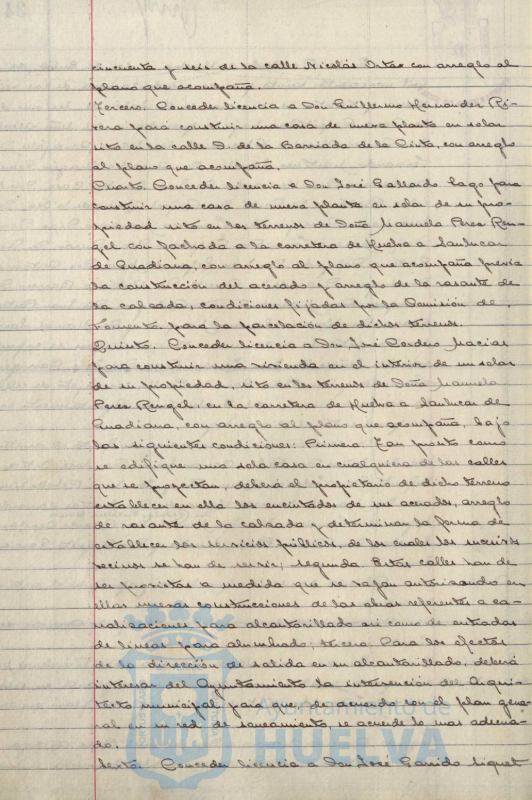 cincuenta y seis de la calle Nicolás Orta con arreglo al
plano que acompaña.
Tercero. Conceder licencia a Don Guillermo Hernandez Ri-
vera para construir una casa de nueva planta en solar
sito en la calle D. de la Barriada de la Cinta, con arreglo
al plano que acompaña.
Cuarto. Conceder licencia a Don José Gallardo Lago para
construir una casa de nueva planta en solar de su pro-
piedad sito en los terrenos de Doña Manuela Perez Ren-
gel con fachada a la carretera de Huelva a Sanlucar
de Guadiana, con arreglo al plano que acompaña previa
la construcción del acerado y arreglo de la rasante de
la calzada, condiciones fijadas por la Comisión de
Fomento para la parcelación de dichos terrenos.
Quinto. Conceder licencia a Don José Cordero Macias
para construir una vivienda en el interior de un solar
de su propiedad, sito en los terrenos de Doña Manuela
Perez Rengel, en la carretera de Huelva a Sanlucar de
Guadiana, con arreglo al plano que acompaña, bajo
las siguientes condiciones: Primera. Tan pronto como
se edifique una sola casa en cualquiera de las calles
que se proyectan, deberá el propietario de dicho terreno
establecer en ella los encintados de sus acerados, arreglo
de rasante de la calzada y determinar la forma de
establecer los servicios públicos, de los cuales los nuevos
vecinos se han de servir; segunda. Estas calles han de
ser provistas a medida que se vayan autorizando en
ellas nuevas construcciones de las obras referentes a ca-
nalizaciones para alcantarillado asi como de entradas
de lineas para alumbrado; tercera. Para los efectos
de la dirección de salida en su alcantarillado, deberá
interesar del Ayuntamiento la intervención del Arqui-
tecto municipal para que, de acuerdo con el plan gene-
ral en su red de saneamiento, se acuerde lo mas adecua-
do.
Sexto. Conceder licencia a Don José Garrido Miguel
Ayuntamiento de
HUELVA